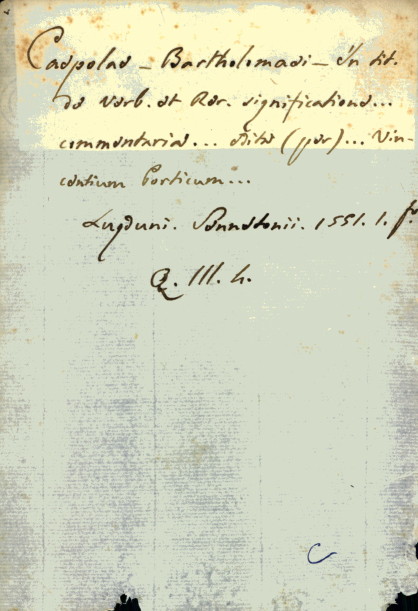 Caepolae - Bartholomaei - In tit.
de verb. et Rer. significatione...
commentaria... edita (per)... Vin-
centium Porticum...
Lugduni. Sennetonii. 1551. 1. fo
Q. III. 4.
C